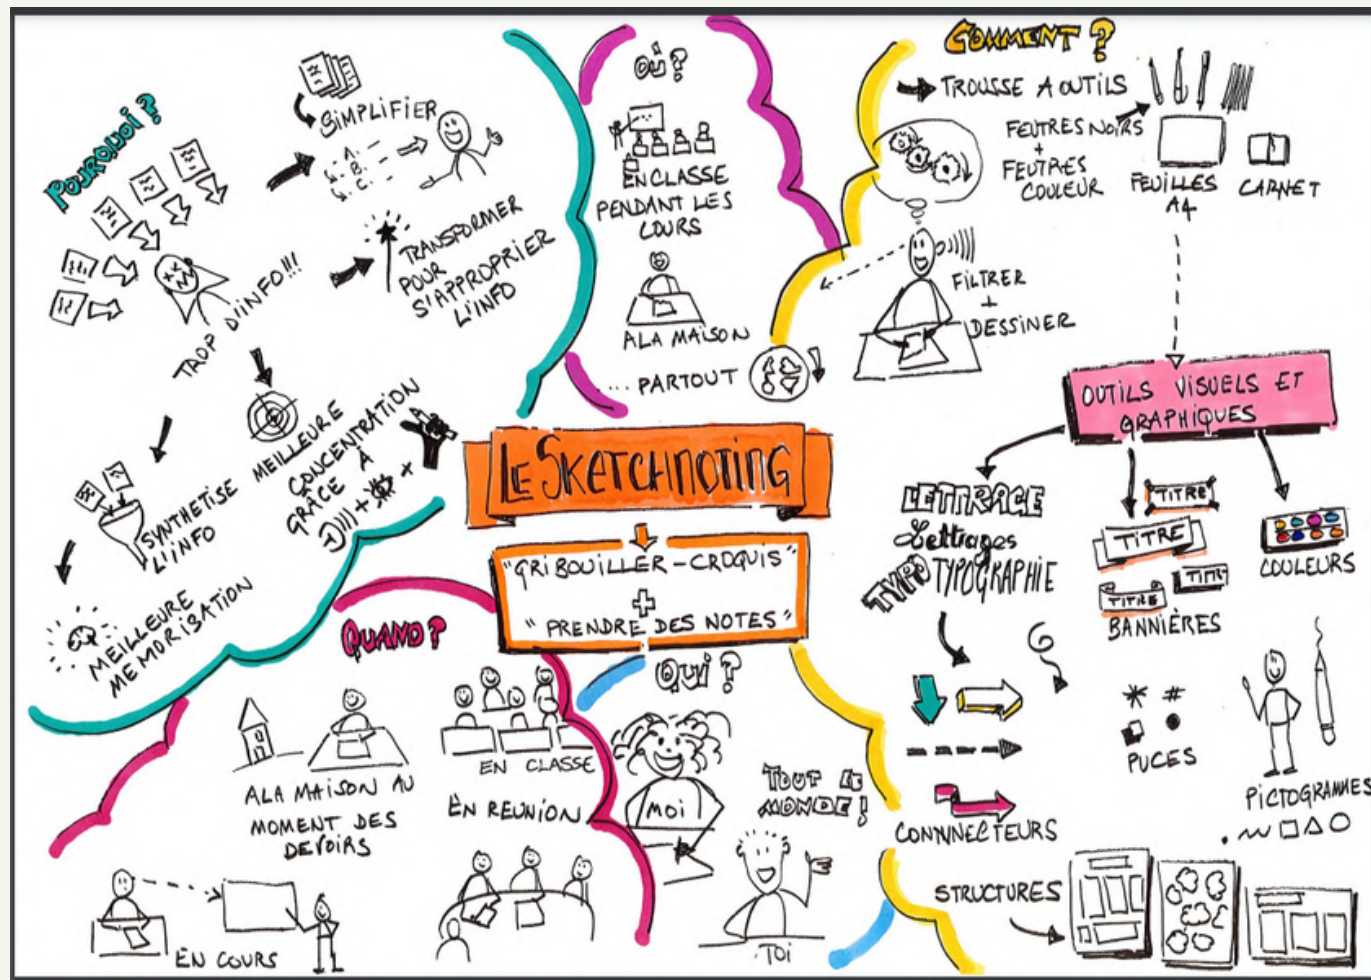 LE SKETCHNOTING
"GRIBOUILLER-CROQUIS"
+
"PRENDRE DES NOTES"
POURQUOI?
TROP D'INFO!!!
SIMPLIFIER
A.
B.
C.
TRANSFORMER
POUR
S'APPROPRIER
L'INFO
MEILLEURE
CONCENTRATION
GRÂCE
À
+
+
SYNTHETISE
L'INFO
MEILLEURE
MEMORISATION
OÙ?
EN CLASSE
PENDANT LES
COURS
A LA MAISON
... PARTOUT
COMMENT?
TROUSSE A OUTILS
FEUTRES NOIRS
+
FEUTRES
COULEUR
FEUILLES
A4
CARNET
FILTRER
+
DESSINER
OUTILS VISUELS ET
GRAPHIQUES
LETTRAGE
Lettrages
TYPO TYPOGRAPHIE
TITRE
TITRE
TITRE
TITRE
BANNIÈRES
COULEURS
CONNNECTEURS
PUCES
PICTOGRAMMES
STRUCTURES
QUAND?
A LA MAISON AU
MOMENT DES
DEVOIRS
EN CLASSE
EN REUNION
EN COURS
QUI?
MOI
TOUT LE
MONDE!
TOI